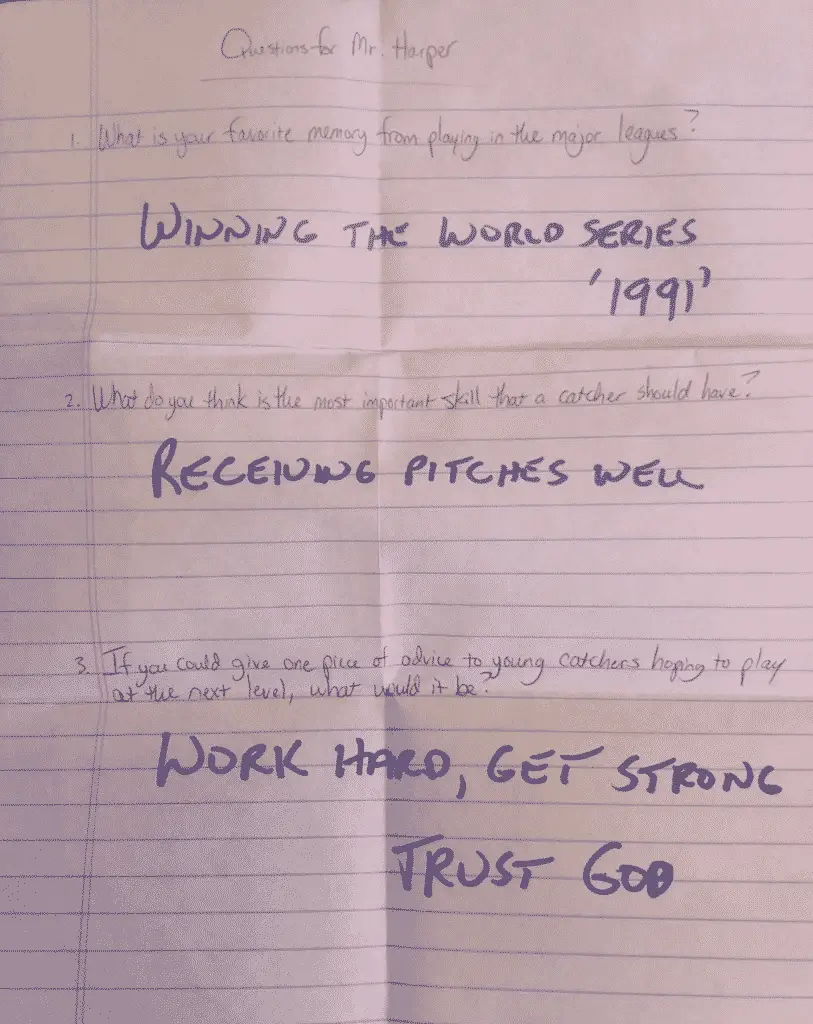 Questions for Mr. Harper
1. What is your favorite memory from playing in the major leagues?
WINNING THE WORLD SERIES
'1991'
2. What do you think is the most important skill that a catcher should have?
RECEIVING PITCHES WELL
3. If you could give one piece of advice to young catchers hoping to play
at the next level, what would it be?
WORK HARD, GET STRONG
TRUST GOD